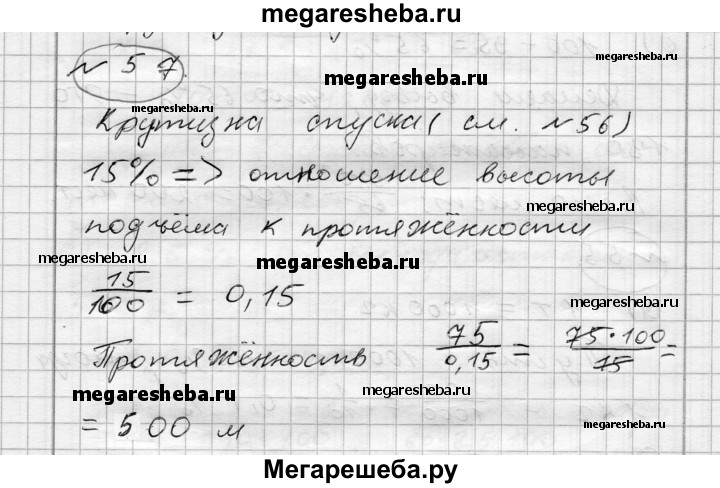 megaresheba.ru
№ 57.
megaresheba.ru
megaresheba.ru
megaresheba.ru
Крутизна спуска (см. №56)
megaresheba.ru
15% => отношение высоты
megaresheba.ru
megaresheba.ru
подъёма к протяжённости
megaresheba.ru
megaresheba.ru
megaresheba.ru
15/100 = 0,15
megaresheba.ru
Протяжённость 75/0,15 = 75·100/15 =
megaresheba.ru
megaresheba.ru
= 500 м
megaresheba.ru
Мегарешеба.ру